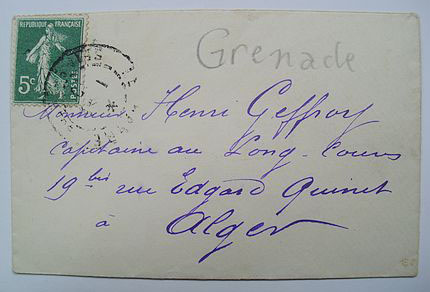 REPUBLIQUE FRANÇAISE
5c
POSTES
Grenade
Monsieur Henri Geffroy
Capitaine au Long-Cours
19 bis rue Edgard Quinet
à Alger